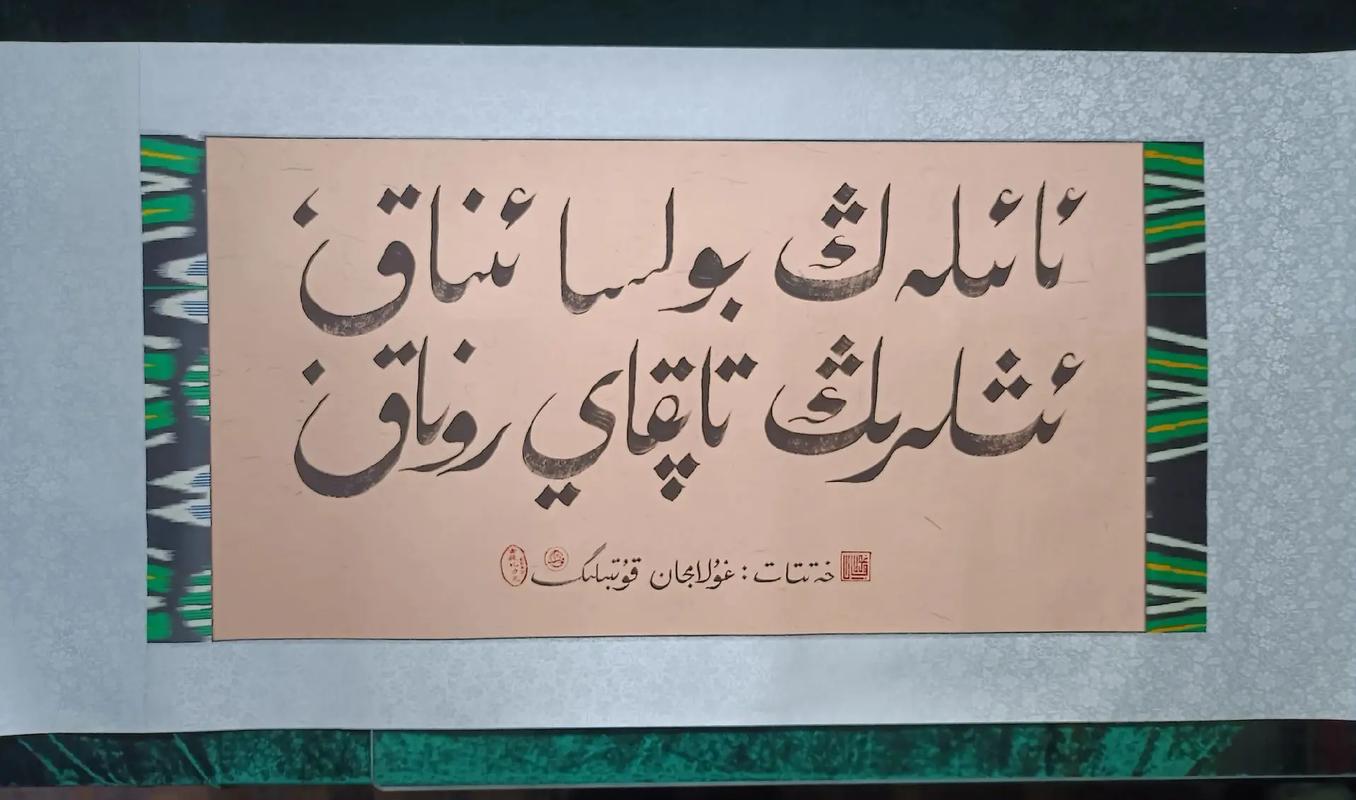 ئائىلەڭ بولسا ئىناق
ئىشلىرىڭ تاپقاي روناق
خەتتات : غۇلامجان قۇتبىلىگ